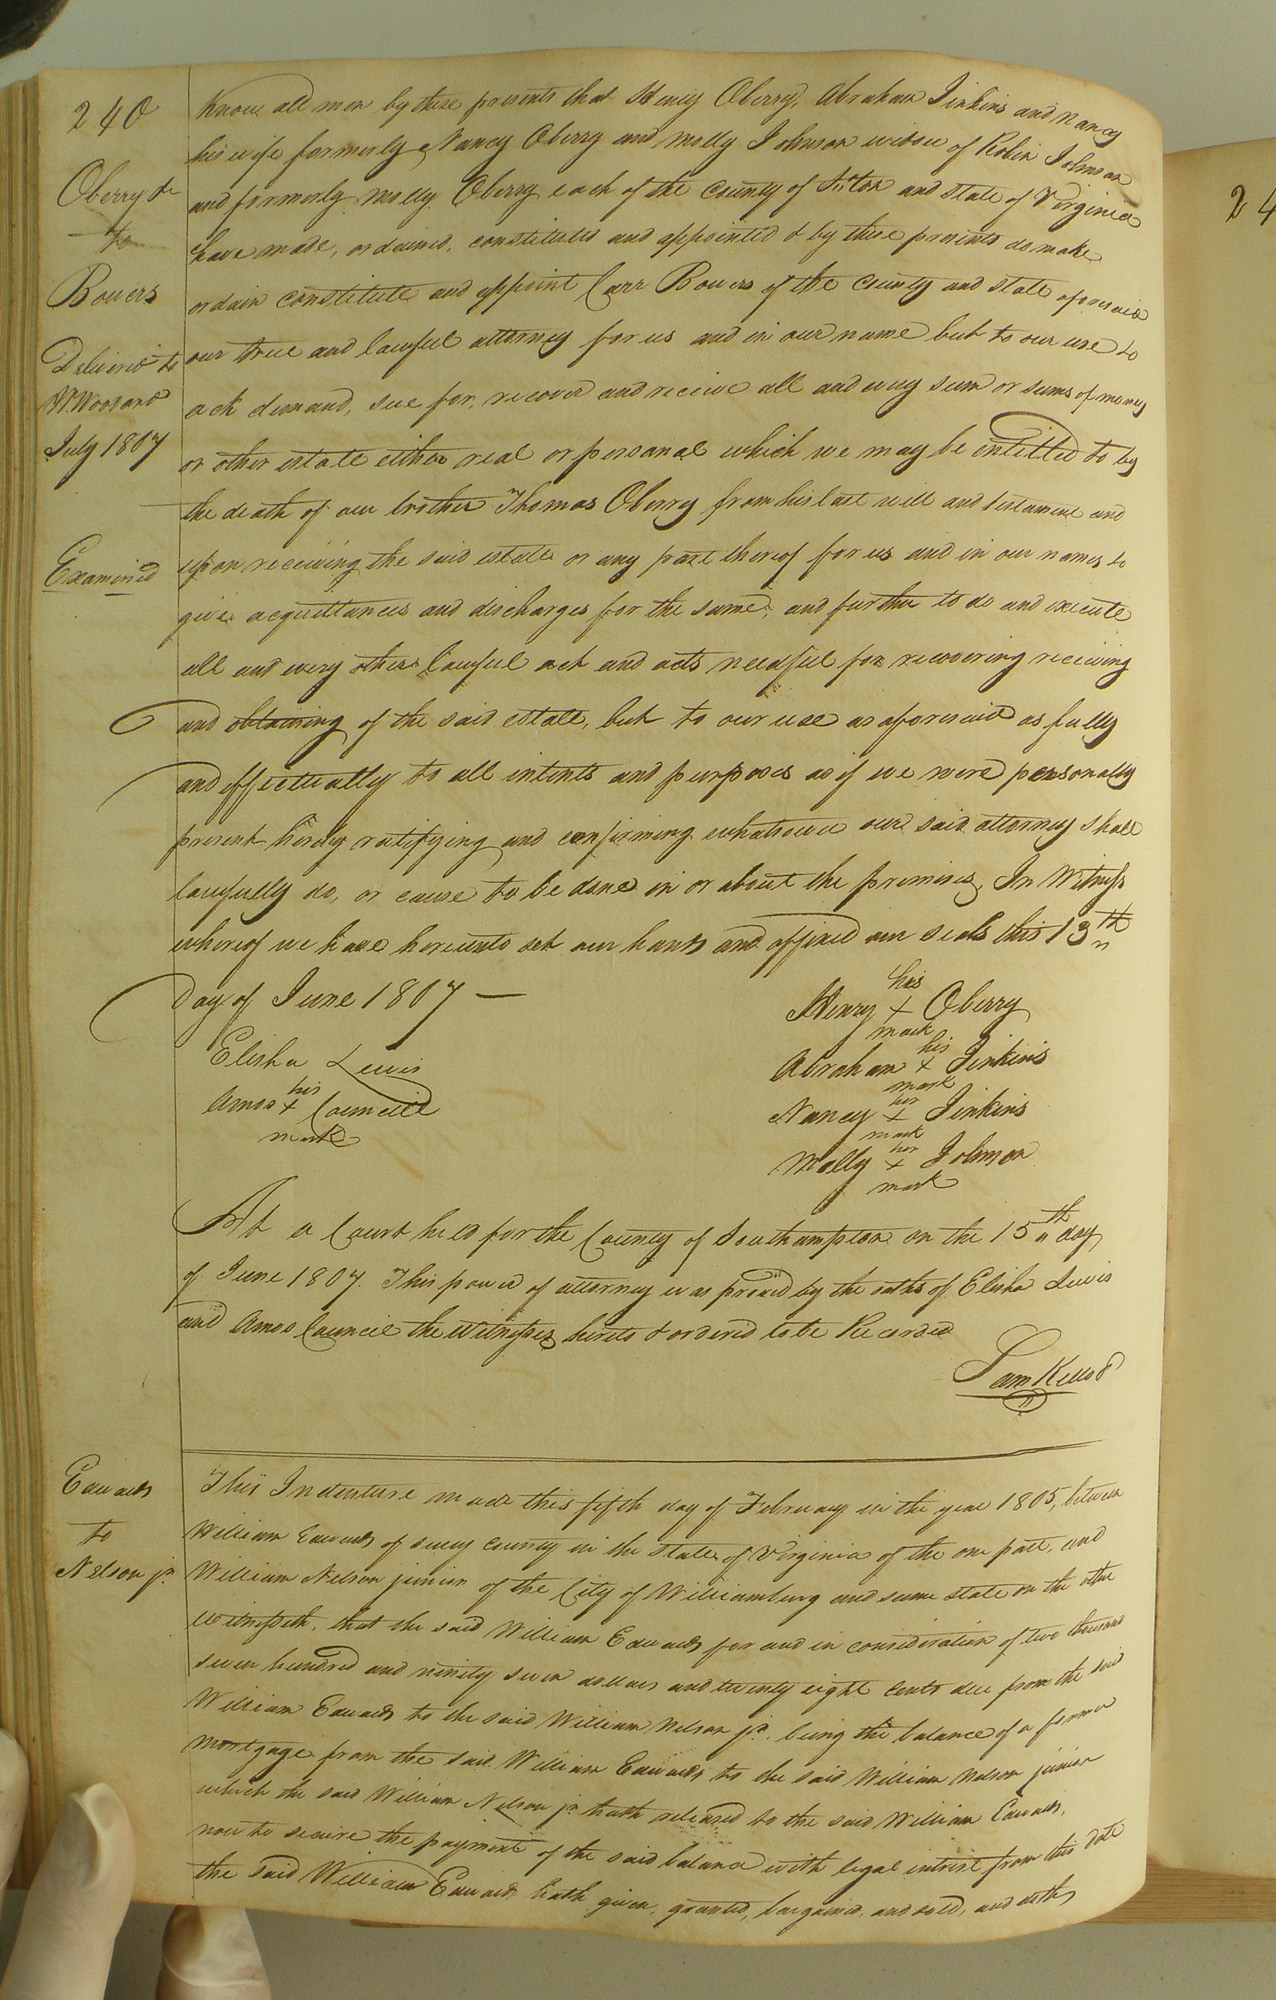 240
Know all men by these presents that Henry Oberry, Abraham Jinkins and Nancy
his wife formerly Nancy Oberry and Molly Johnson widow of Robin Johnson
and formerly Molly Oberry each of the County of and State of Virginia
have made, ordained, constituted and appointed & by these presents do make
ordain constitute and appoint Carr Bowers of the County and State aforesaid
our true and lawful attorney for us and in our name but to our use to
ask demand, sue for, recover and receive all and every sum or sums of money
or other estate either real or personal which we may be entitled to by
the death of our brother Thomas Oberry from his last will and testament and
upon receiving the said estate or any part thereof for us and in our names to
give acquittances and discharges for the same, and further to do and execute
all and every other lawful act and acts needful for recovering receiving
and obtaining of the said estate, but to our use as aforesaid as fully
and effectually to all intents and purposes as if we were personally
present hereby ratifying and confirming whatsoever our said attorney shall
lawfully do, or cause to be done in or about the premises, In Witness
whereof we have hereunto set our hands and affixed our seals this 13th
day of June 1807 —
Oberry &c
to
Bowers
Deliver'd to
W. Woodard
July 1807
Examined
Henry his + mark Oberry
Abraham his + mark Jinkins
Nancy her + mark Jinkins
Molly her + mark Johnson
Elisha Lewis
Amos his + mark Councill
At a Court held for the County of Southampton on the 15th day
of June 1807. This power of attorney was proved by the oaths of Elisha Lewis
and Amos Council the Witnesses hereto & ordered to be Recorded
Sam Kello
Edwards
to
Nelson jr.
This Indenture made this fifth day of February in the year 1805, between
William Edwards of Surry County in the State of Virginia of the one part, and
William Nelson junior of the City of Williamburg and same state on the other
Witnesseth, that the said William Edwards for and in consideration of two thousand
seven hundred and ninety seven dollars and twenty eight cents due from the said
William Edwards to the said William Nelson jr. being the balance of a former
mortgage from the said William Edwards to the said William Nelson junior
which the said William Nelson jr. hath released to the said William Edwards,
now to secure the payment of the said balance with legal interest from this date
the said William Edwards hath given, granted, bargained, and sold, and doth
24